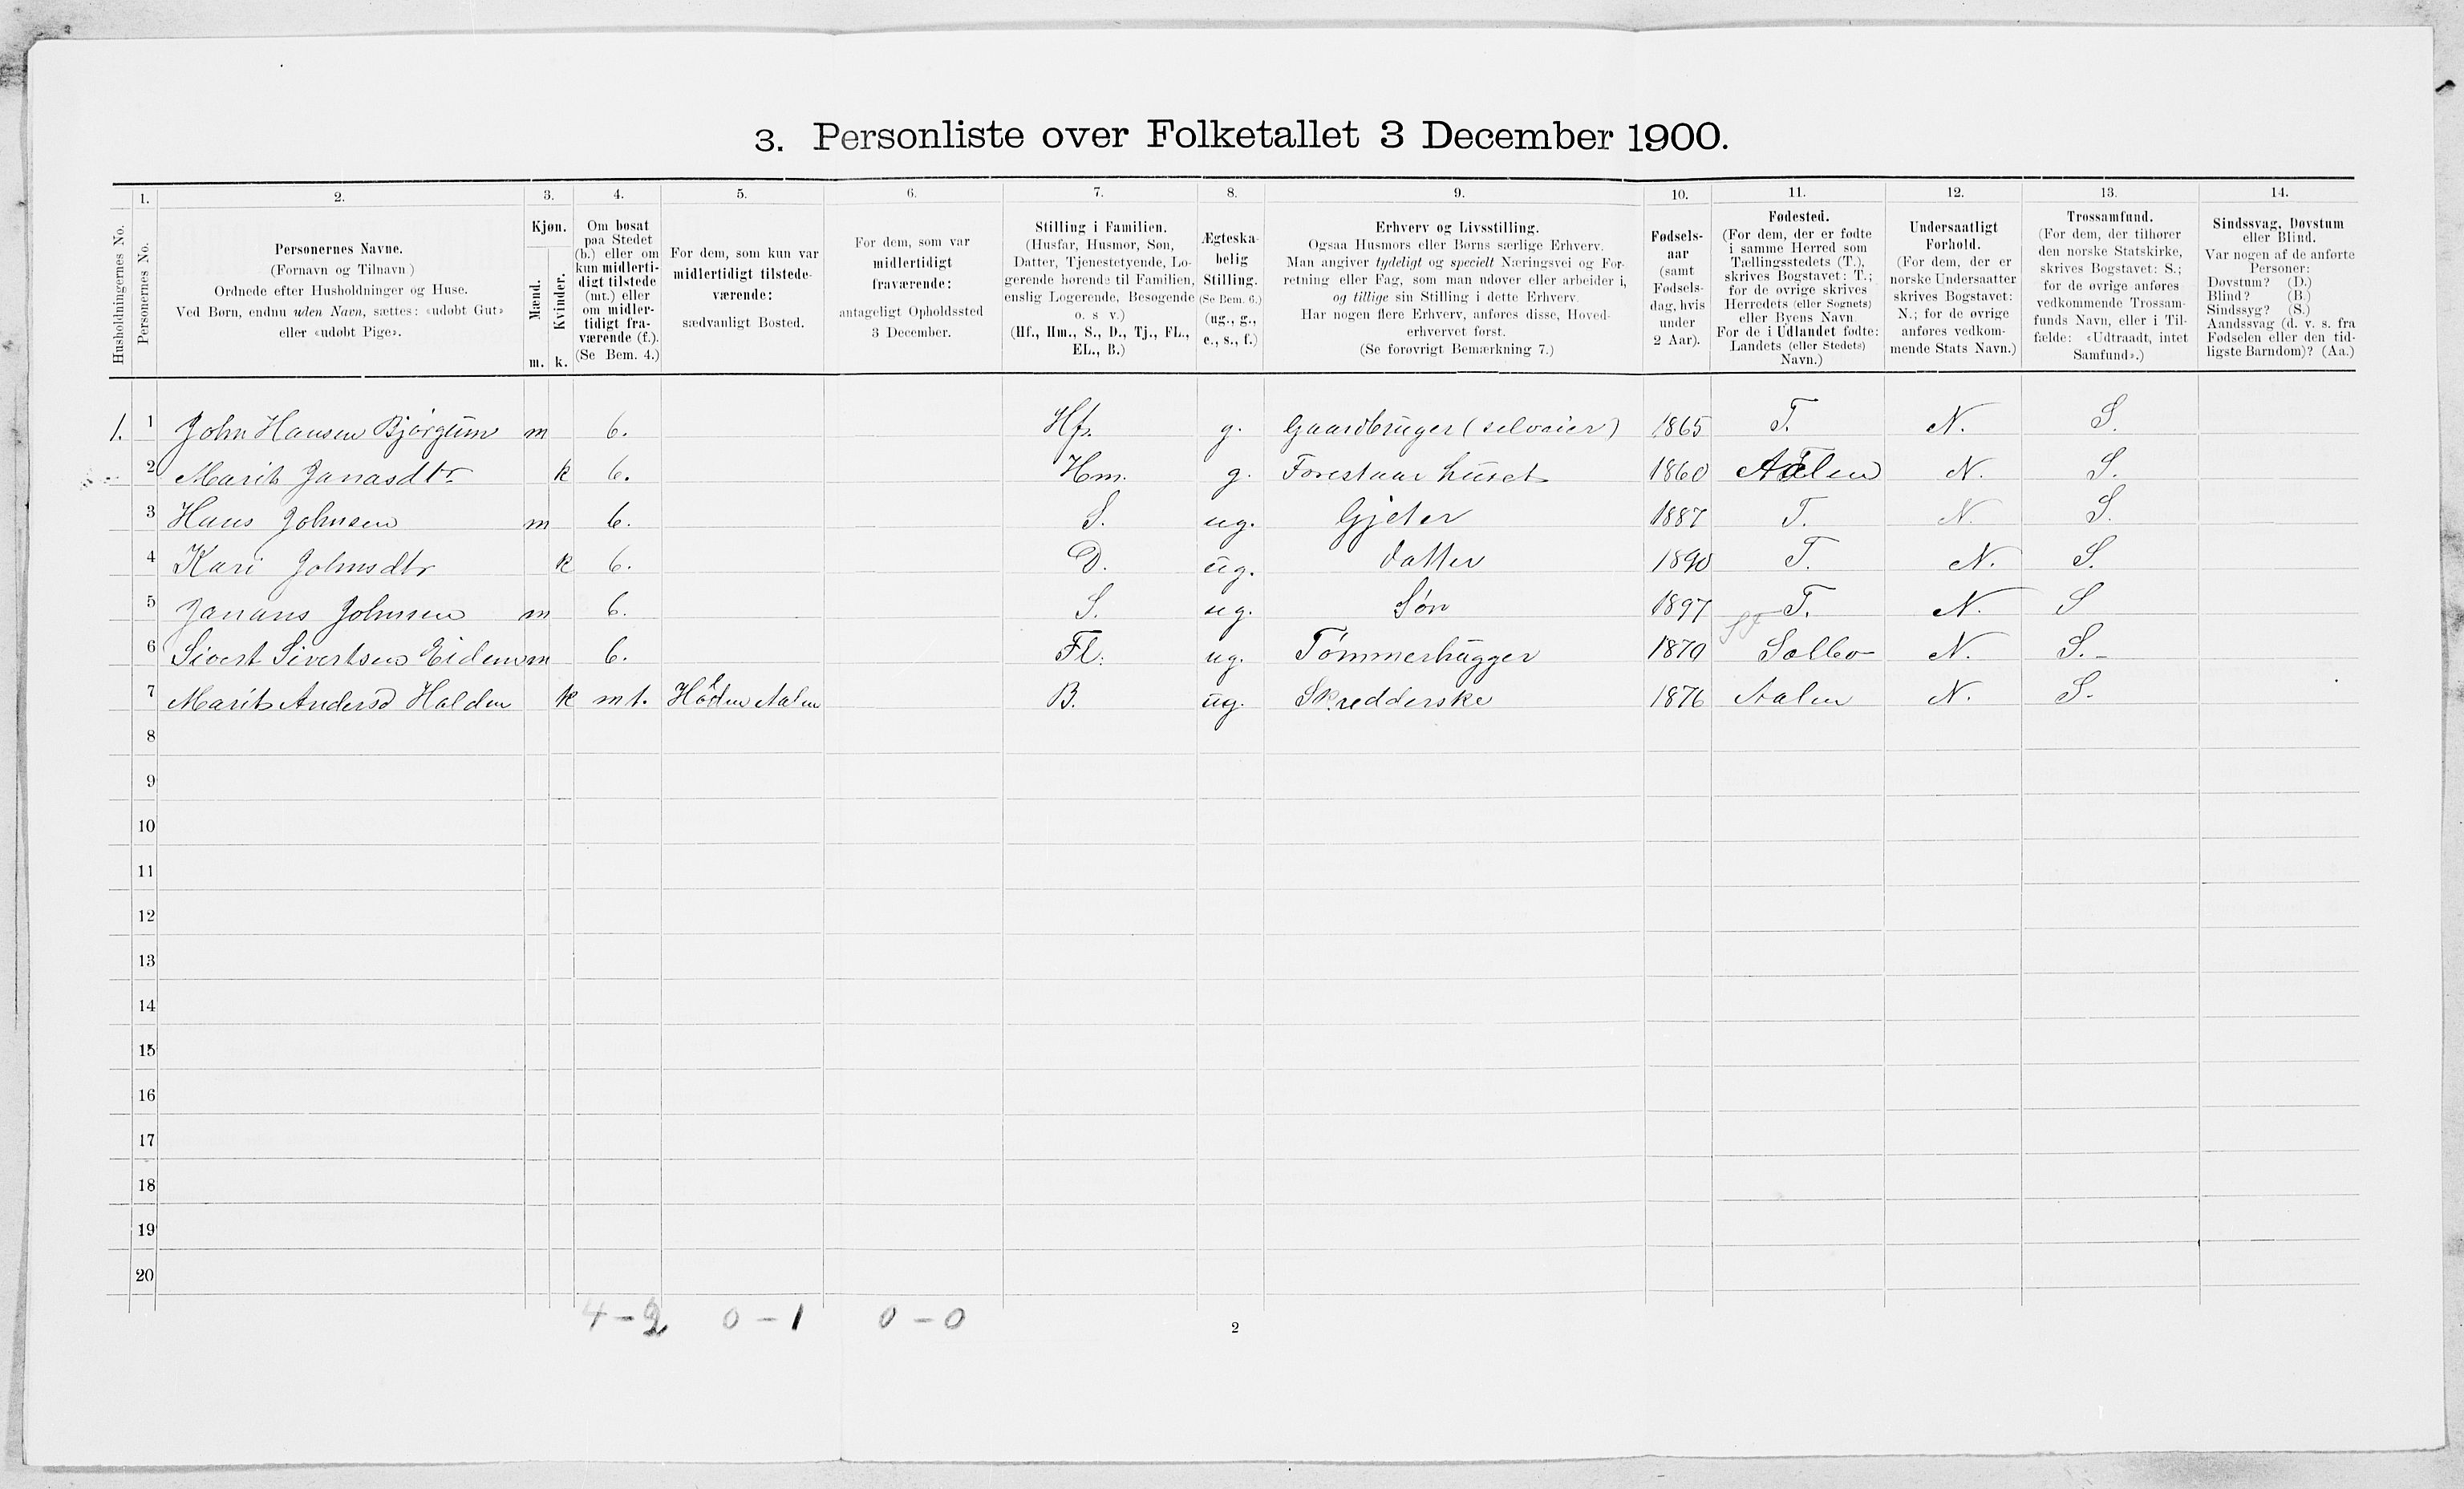 3. Personliste over Folketallet 3 December 1900.
1. 2. 3. 4. 5. 6. 7. 8. 9. 10. 11. 12. 13. 14.
Husholdningernes No.
Personernes No.
Personernes Navne.
(Fornavn og Tilnavn)
Ordnede efter Husholdninger og Huse.
Ved Børn, endnu uden Navn, sættes: «udøbt Gut»
eller «udøbt Pige».
Kjøn.
Mænd.
Kvinder.
m. k.
Om bosat
paa Stedet
(b.) eller om
kun midlerti-
digt tilstede
(mt.) eller
om midler-
tidigt fra-
værende (f.).
(Se Bem. 4.)
For dem, som kun var
midlertidigt tilstede-
værende:
sædvanligt Bosted.
For dem, som var
midlertidigt
fraværende:
antageligt Opholdssted
3 December.
Stilling i Familien.
(Husfar, Husmor, Søn,
Datter, Tjenestetyende, Lo-
gerende hørende til Familien,
enslig Logerende, Besøgende
o. s. v.)
(Hf., Hm., S., D., Tj., FL.,
EL., B.)
Ægteska-
belig
Stilling.
(Se Bem. 6.)
(ug., g.,
e., s., f.)
Erhverv og Livsstilling.
Ogsaa Husmors eller Børns særlige Erhverv.
Man angiver tydeligt og specielt Næringsvei og For-
retning eller Fag, som man udøver eller arbeider i,
og tillige sin Stilling i dette Erhverv.
Har nogen flere Erhverv, anføres disse, Hoved-
erhvervet først.
(Se forøvrigt Bemærkning 7.)
Fødsels-
aar
(samt
Fødsels-
dag, hvis
under
2 Aar).
Fødested.
(For dem, der er fødte
i samme Herred som
Tællingsstedets (T.),
skrives Bogstavet: T.;
for de øvrige skrives
Herredets (eller Sognets)
eller Byens Navn.
For de i Udlandet fødte:
Landets (eller Stedets)
Navn.)
Undersaatligt
Forhold.
(For dem, der er
norske Undersaatter
skrives Bogstavet:
N.; for de øvrige
anføres vedkom-
mende Stats Navn.)
Trossamfund.
(For dem, der tilhører
den norske Statskirke,
skrives Bogstavet: S.;
for de øvrige anføres
vedkommende Trossam-
funds Navn, eller i Til-
fælde: «Udtraadt, intet
Samfund».)
Sindssvag, Døvstum
eller Blind.
Var nogen af de anførte
Personer:
Døvstum? (D.)
Blind? (B.)
Sindssyg? (S.)
Aandssvag (d. v. s. fra
Fødselen eller den tid-
ligste Barndom)? (Aa.)
1. 1 John Hansen Bjørgum m b. Hf. g. Gaardbruger (selveier) 1865 T. N. S.
2 Marit Janasdtr. k b. Hm. g. Forestaar huset 1860 Aalen N. S.
3 Hans Johnsen m b. S. ug. Gjeter 1887 T. N. S.
4 Kari Johnsdtr k b. D. ug. datter 1890 T. N. S.
5 Janans Johnsen m b. S. ug. Søn 1897 T. N. S
6 Sivert Sivertsen Eidem m b. Fl. ug. Tømmerhugger 1870 Selbo N. S.
7 Marit Andersd Holden k mt. Holden Aalen B. ug. Skredderske 1876 Aalen N. S.
8
9
10
11
12
13
14
15
16
17
18
19
20
4 - 2 0 - 1 0 - 0
2